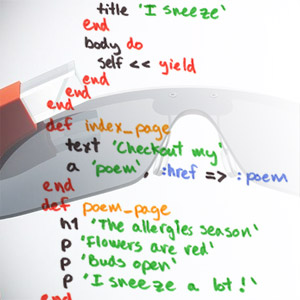 title 'I sneeze'
end
body do
self << yield
end
end
end
def index_page
text 'Checkout my'
a 'poem', :href => :poem
end
def poem_page
h1 'The allergies season'
p 'Flowers are red'
p 'Buds open'
p 'I sneeze a lot!'
end